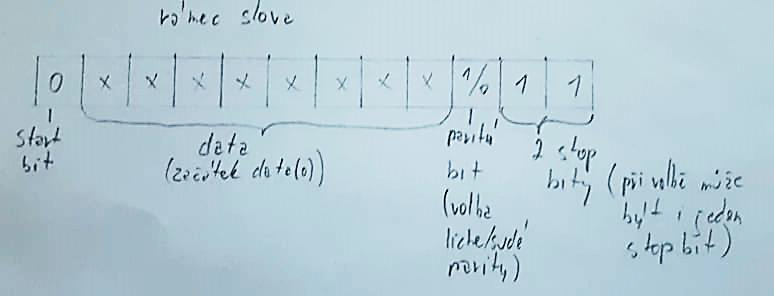 rámec slova
0 x x x x x x x x 1/0 1 1
start
bit
data
(začátek data(0))
paritní
bit
(volba
liché/sudé
parity)
2 stop
bity (při volbě může
být i jeden
stop bit)